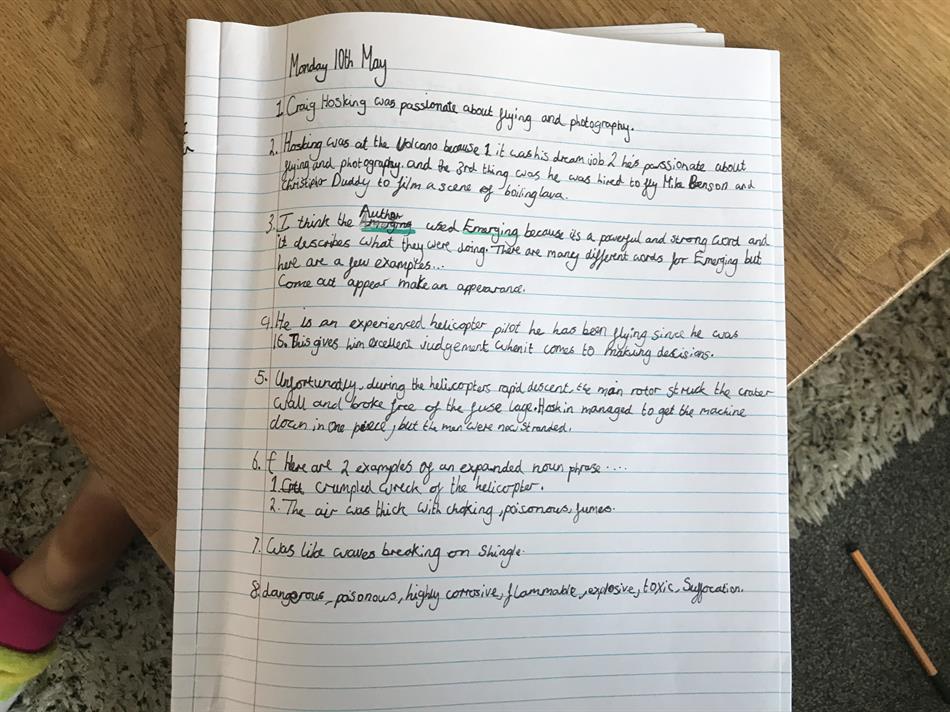 Monday 10th May
1. Craig Hosking was passionate about flying and photography.
2. Hosking was at the Volcano because 1 it was his dream job 2 he's passionate about
flying and photography. and the 3rd thing was he was hired to fly Mike Benson and
Christipher Duddy to film a scene of boiling lava.
3. I think the Author used Emerging because its a powerful and strong word and
it describes what they were doing. There are many different words for Emerging but
here are a few examples...
Come out appear make an appearance.
4. He is an experienced helicopter pilot he has been flying since he was
16. This gives him excellent judgement when it comes to making descisions.
5. Unfortunatly, during the helicopters rapid descent, the main rotor struck the crater
wall and broke free of the fuse lage. Hoskin managed to get the machine
down in one piece, but the men were now stranded.
6. Here are 2 examples of an expanded noun phrase....
1. crumpled wreck of the helicopter.
2. The air was thick with choking, poisonous, fumes.
7. Was like waves breaking on Shingle.
8. dangerous, poisonous, highly corrosive, flammable, explosive, toxic, Suffocation.